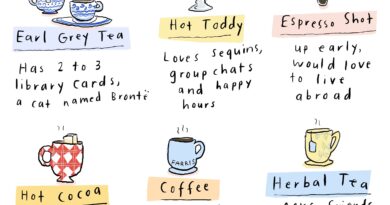 Earl Grey Tea
Has 2 to 3
library cards,
a cat named Brontë
Hot Toddy
Loves sequins,
group chats
and happy
hours
Espresso Shot
up early,
would love
to live
abroad
Hot Cocoa
FARRIS
Coffee
Herbal Tea